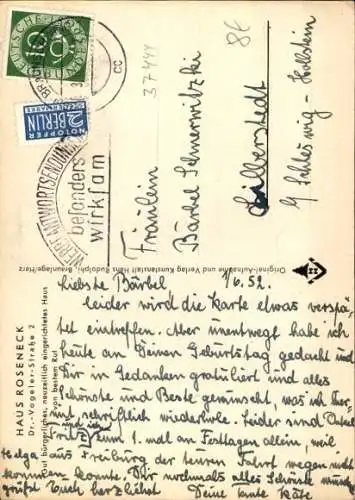 Liebste Bärbel! 1/6.52.
leider wird die Karte etwas verspä-
tet eintreffen. Aber unentwegt habe ich
heute an Deinen Geburtstag gedacht und
Dir in Gedanken gratuliert und alles
Schönste und Beste gewünscht, was ich hier-
mit schriftlich wiederhole. Leider sind Onkel
Fritz und ich zum 1. mal an Festtagen allein, weil
Helga aus Freiburg der teuren Fahrt wegen nicht
kommen konnte. Dir nochmals alles Schönste
grüßt Euch herzlichst Deine Tante Käte
Fräulein
Bärbel Schmerwitzki
Silberstedt
Schleswig-Holstein
37444
8f
HAUS ROSENECK
Dr.-Vogeler-Straße 2
Gut bürgerliches, neuzeitlich eingerichtetes Haus
von bestem Ruf
Original-Aufnahme und Verlag Kunstanstalt Hans Rudolphi, Braunlage/Harz
WERBEANTWORTSENDUNGEN
besonders
wirksam
cc
DEUTSCHE POST
NOTOPFER
2 BERLIN
STEUERMARKE